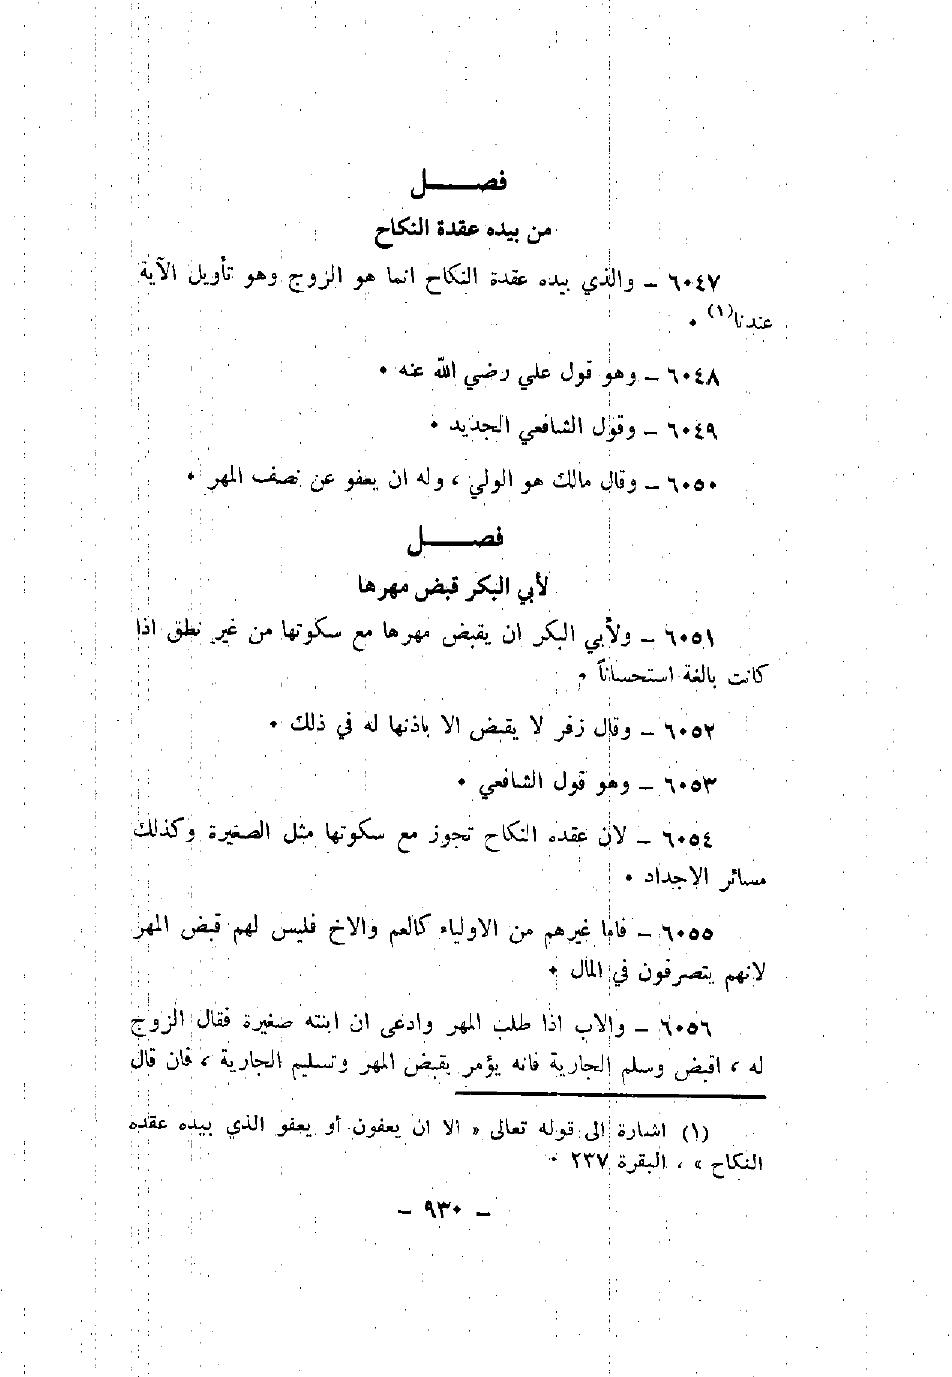 فصــــل
من بيده عقدة النكاح
٦٠٤٧ – والذي بيده عقدة النكاح انما هو الزوج وهو تأويل الآية
عندنا(١) ٠
٦٠٤٨ – وهو قول علي رضي الله عنه ٠
٦٠٤٩ – وقول الشافعي الجديد ٠
٦٠٥٠ – وقال مالك هو الولي ، وله ان يعفو عن نصف المهر ٠
فصــــل
لأبي البكر قبض مهرها
٦٠٥١ – ولأبي البكر ان يقبض مهرها مع سكوتها من غير نطق اذا
كانت بالغة استحساناً ٠
٦٠٥٢ – وقال زفر لا يقبض الا باذنها له في ذلك ٠
٦٠٥٣ – وهو قول الشافعي ٠
٦٠٥٤ – لان عقده النكاح تجوز مع سكوتها مثل الصغيرة وكذلك
سائر الاجداد ٠
٦٠٥٥ – فاما غيرهم من الاولياء كالعم والاخ فليس لهم قبض المهر
لانهم يتصرفون في المال ٠
٦٠٥٦ – والاب اذا طلب المهر وادعى ان ابنته صغيرة فقال الزوج
له ، اقبض وسلم الجارية فانه يؤمر بقبض المهر وتسليم الجارية ، فان قال
(١) اشارة الى قوله تعالى « الا ان يعفون أو يعفو الذي بيده عقده
النكاح » ، البقرة ٢٣٧ ٠
– ٩٣٠ –